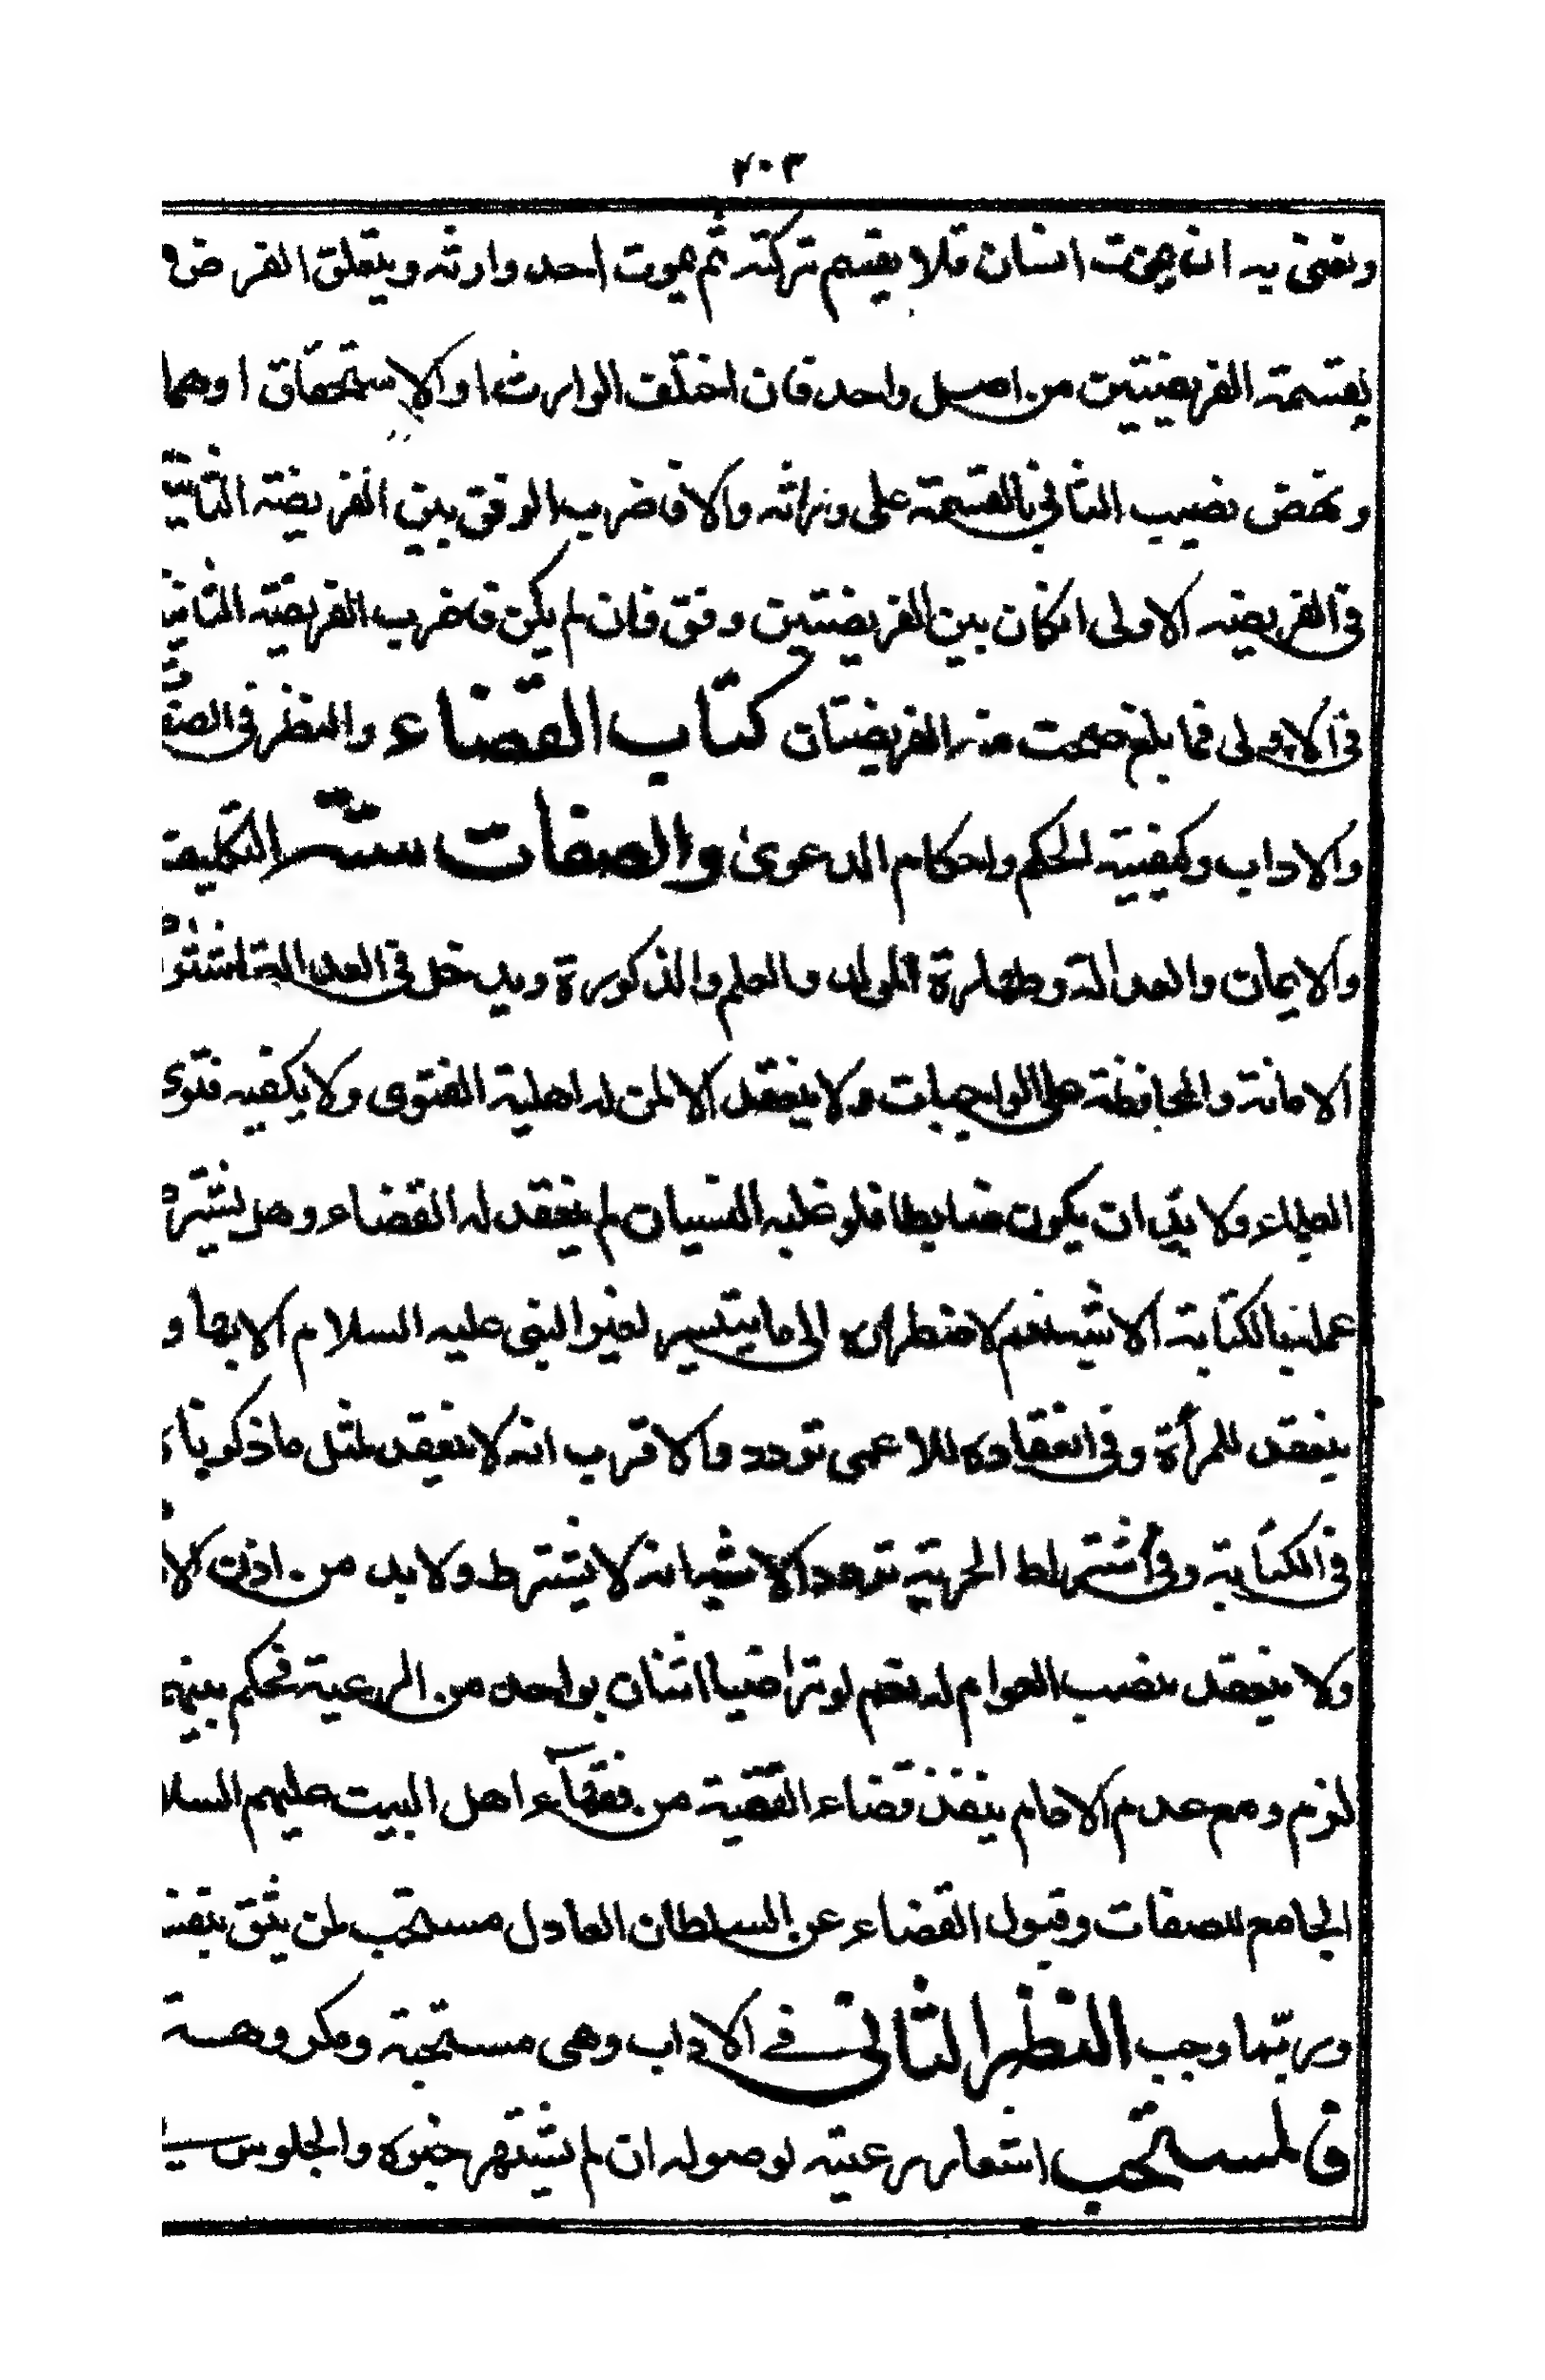 ٢٠٣
ونعني به ان يموت انسان فلا يقسم تركته ثم يموت احد وارثه ويتعلق الغرض
بقسمة الفريضتين من اصل واحد فان اختلف الوارث او الاستحقاق اوهما
ونهض نصيب الثاني بالقسمة على وراثه والا فاضرب الوفق بين الفريضة الثانية
في الفريضه الاولى انكان بين الفريضتين وفق فان لم يكن فاضرب الفريضة الثانية
في الاولى فما بلغ صحت منه الفريضتان كتاب القضاء والنظر في
والاداب وكيفية الحكم واحكام الدعوى والصفات ستة التكليف
والايمان والعدالة وطهارة المولد والعلم والذكورة ويدخل في العدالة
الامانة والمحافظة على الواجبات ولا ينعقد الا لمن له اهلية الفتوى ولا يكفيه فتوى
العلماء ولا بد ان يكون ضابطا فلو غلبه النسيان لم ينعقد له القضاء وهل
علمه بالكتابة الاشبه نعم لاضطراره الى ما يتيسر لغير النبي عليه السلام الا بها و
ينعقد للمرأة وفي انعقاده للاعمى تردد والاقرب انه لا ينعقد لمثل ما ذكرناه
في الكتابة وفي اشتراط الحرية تردد الاشبه انه لا يشترط ولا بد من اذن
ولا ينعقد بنصب العوام له نعم لو تراضيا اثنان بواحد من الرعية فحكم بينهم
لزم ومع عدم الامام ينفذ قضاء الفقيه من فقهاء اهل البيت عليهم
الجامع للصفات وقبول القضاء عن السلطان العادل مستحب لمن يثق
وربما وجب النظر الثاني في الاداب وهي مستحبة ومكروهة
فالمستحب اشعار رعيته لوصوله ان لم يشتهر خبره والجلوس